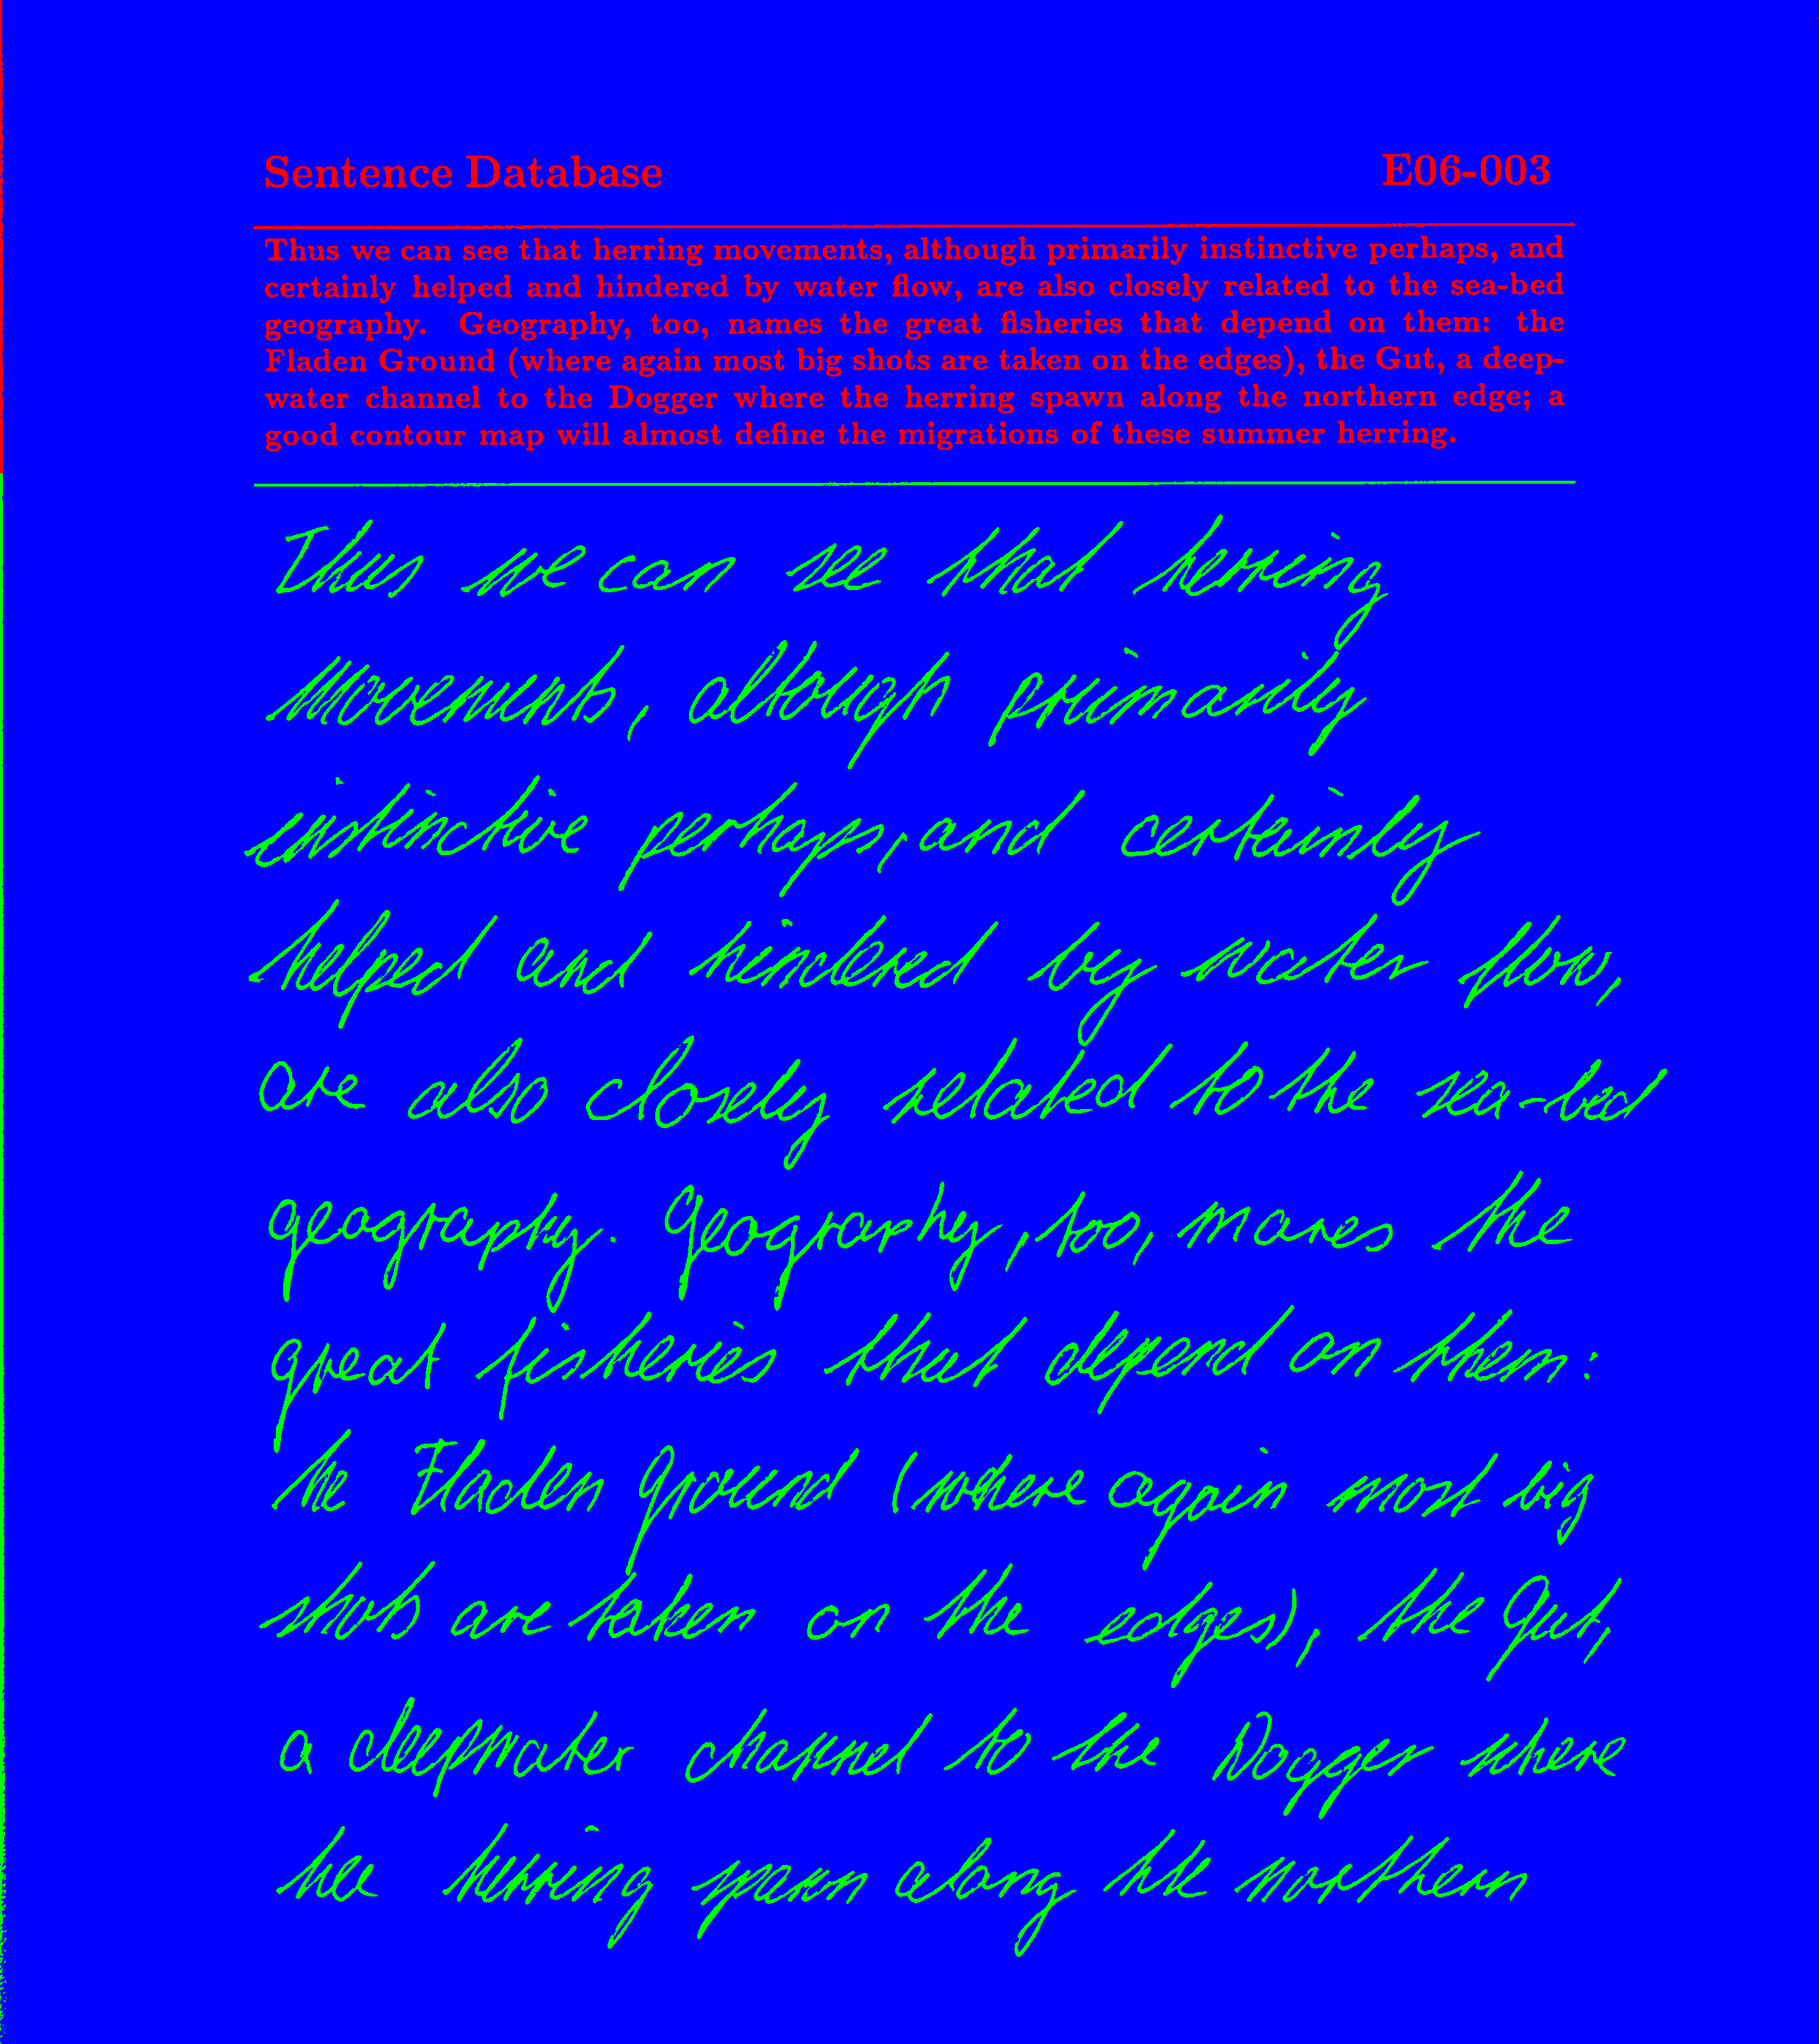 Sentence Database E06-003
Thus we can see that herring movements, although primarily instinctive perhaps, and
certainly helped and hindered by water flow, are also closely related to the sea-bed
geography. Geography, too, names the great fisheries that depend on them: the
Fladen Ground (where again most big shots are taken on the edges), the Gut, a deep-
water channel to the Dogger where the herring spawn along the northern edge; a
good contour map will almost define the migrations of these summer herring.
Thus we can see that herring
movements, altough primarily
instinctive perhaps, and certainly
helped and hindered by water flow,
are also closely related to the sea-bed
geography. Geography, too, mares the
great fisheries that depend on them:
the Fladen Ground (where again most big
shots are taken on the edges), the Gut,
a deepwater channel to the Dogger where
the herring spawn along the northern